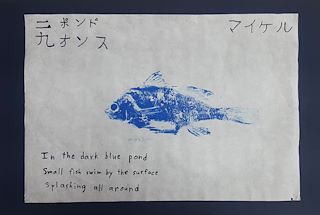 二 ポンド
九 オンス
マイケル
In the dark blue pond
Small fish swim by the surface
Splashing all around